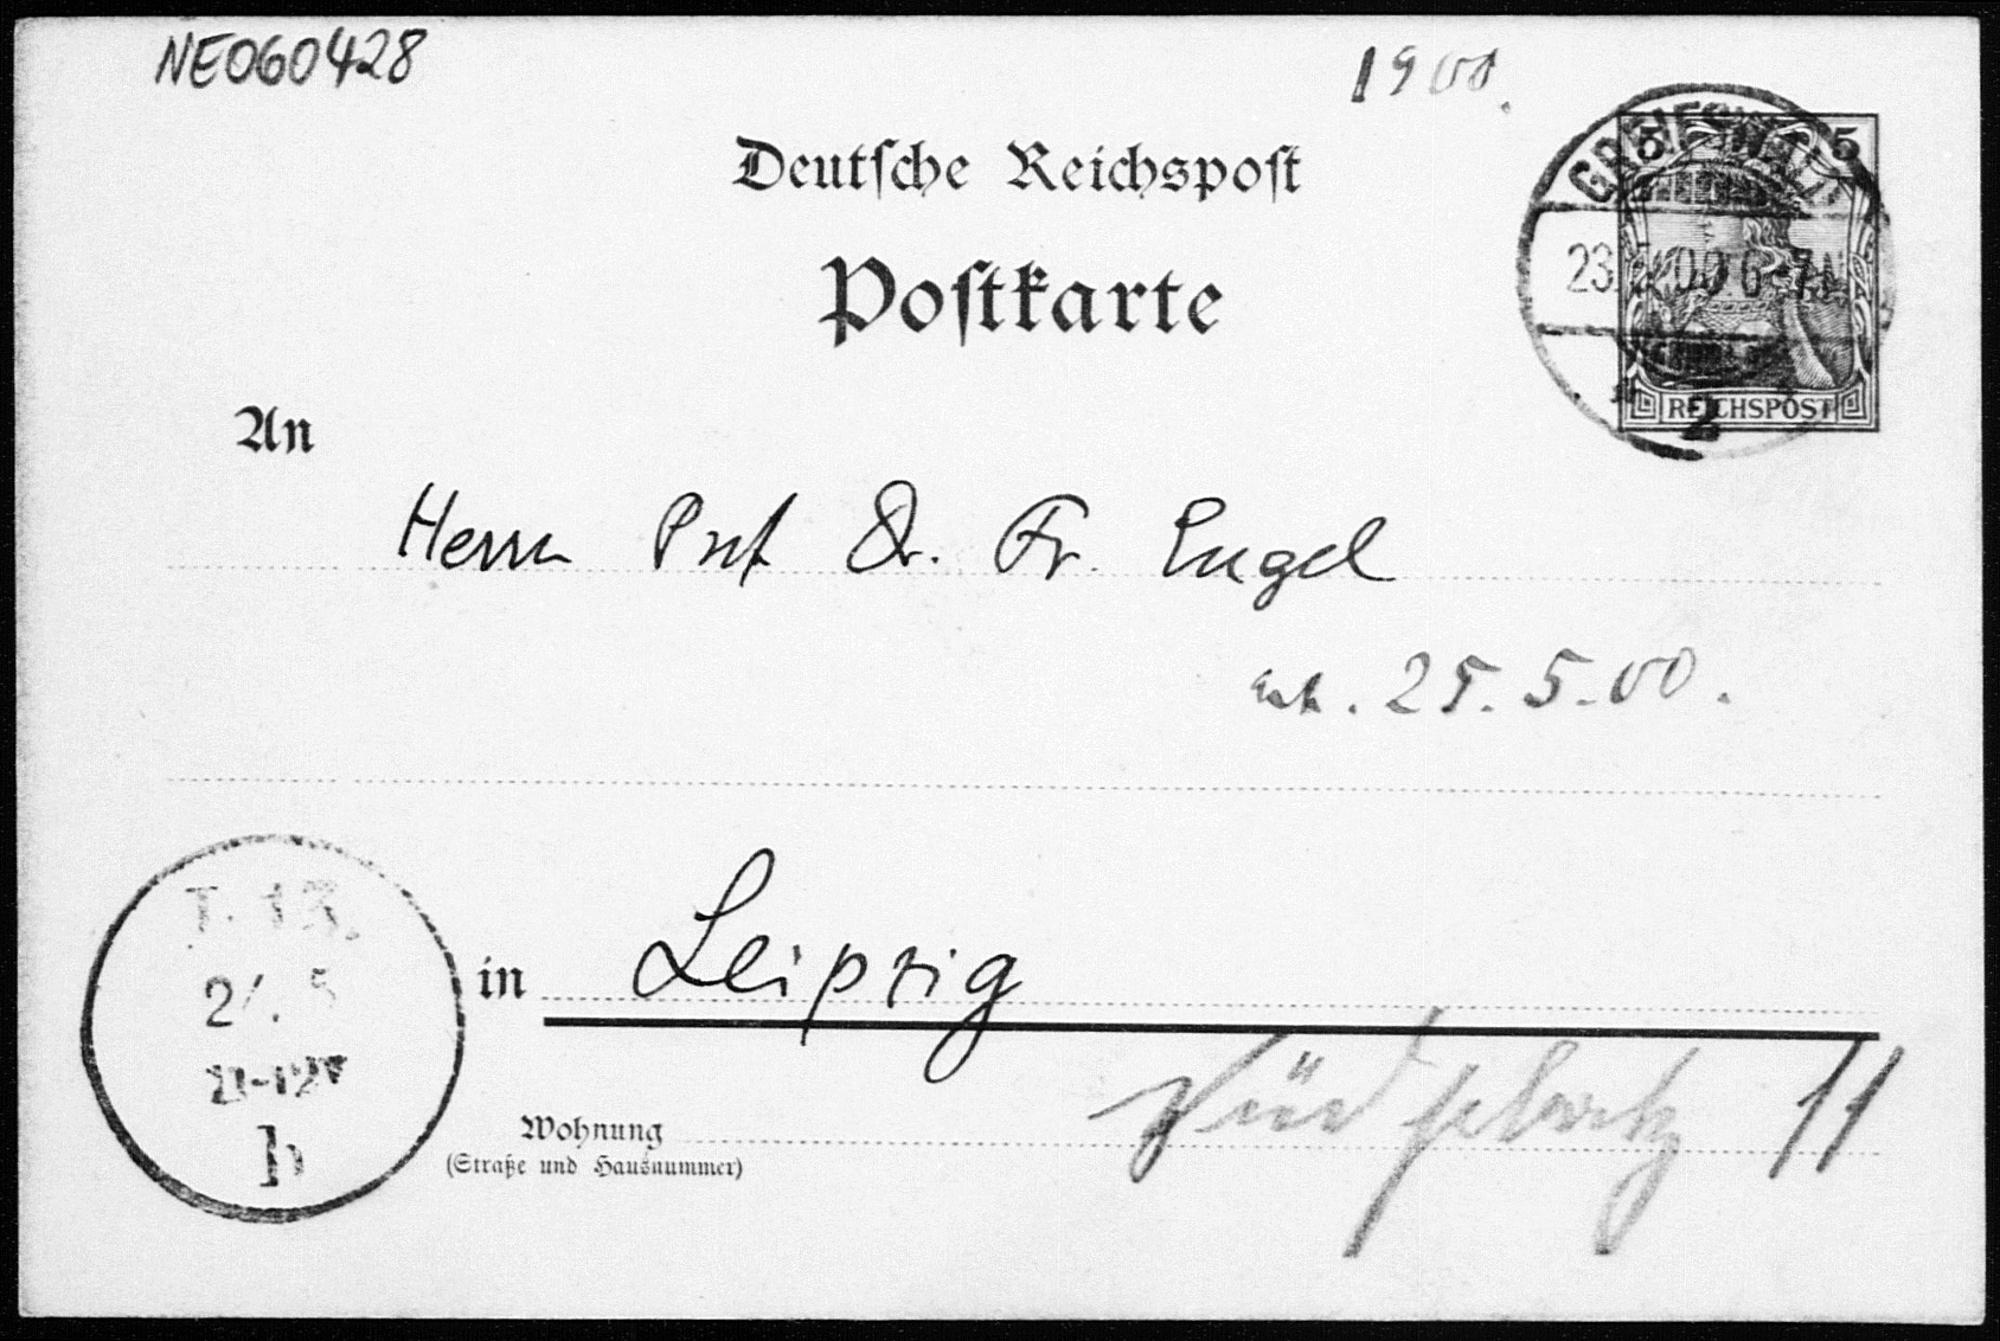 NE060428
1900.
Deutsche Reichspost
Postkarte
5 5
GREIFSWALD
23. 00 6-7N
REICHSPOST
2
An
Herrn Prof Dr. Fr. Engel
25.5.00.
in Leipzig
11-12V
b
Wohnung
(Straße und Hausnummer)
Südplatz 11